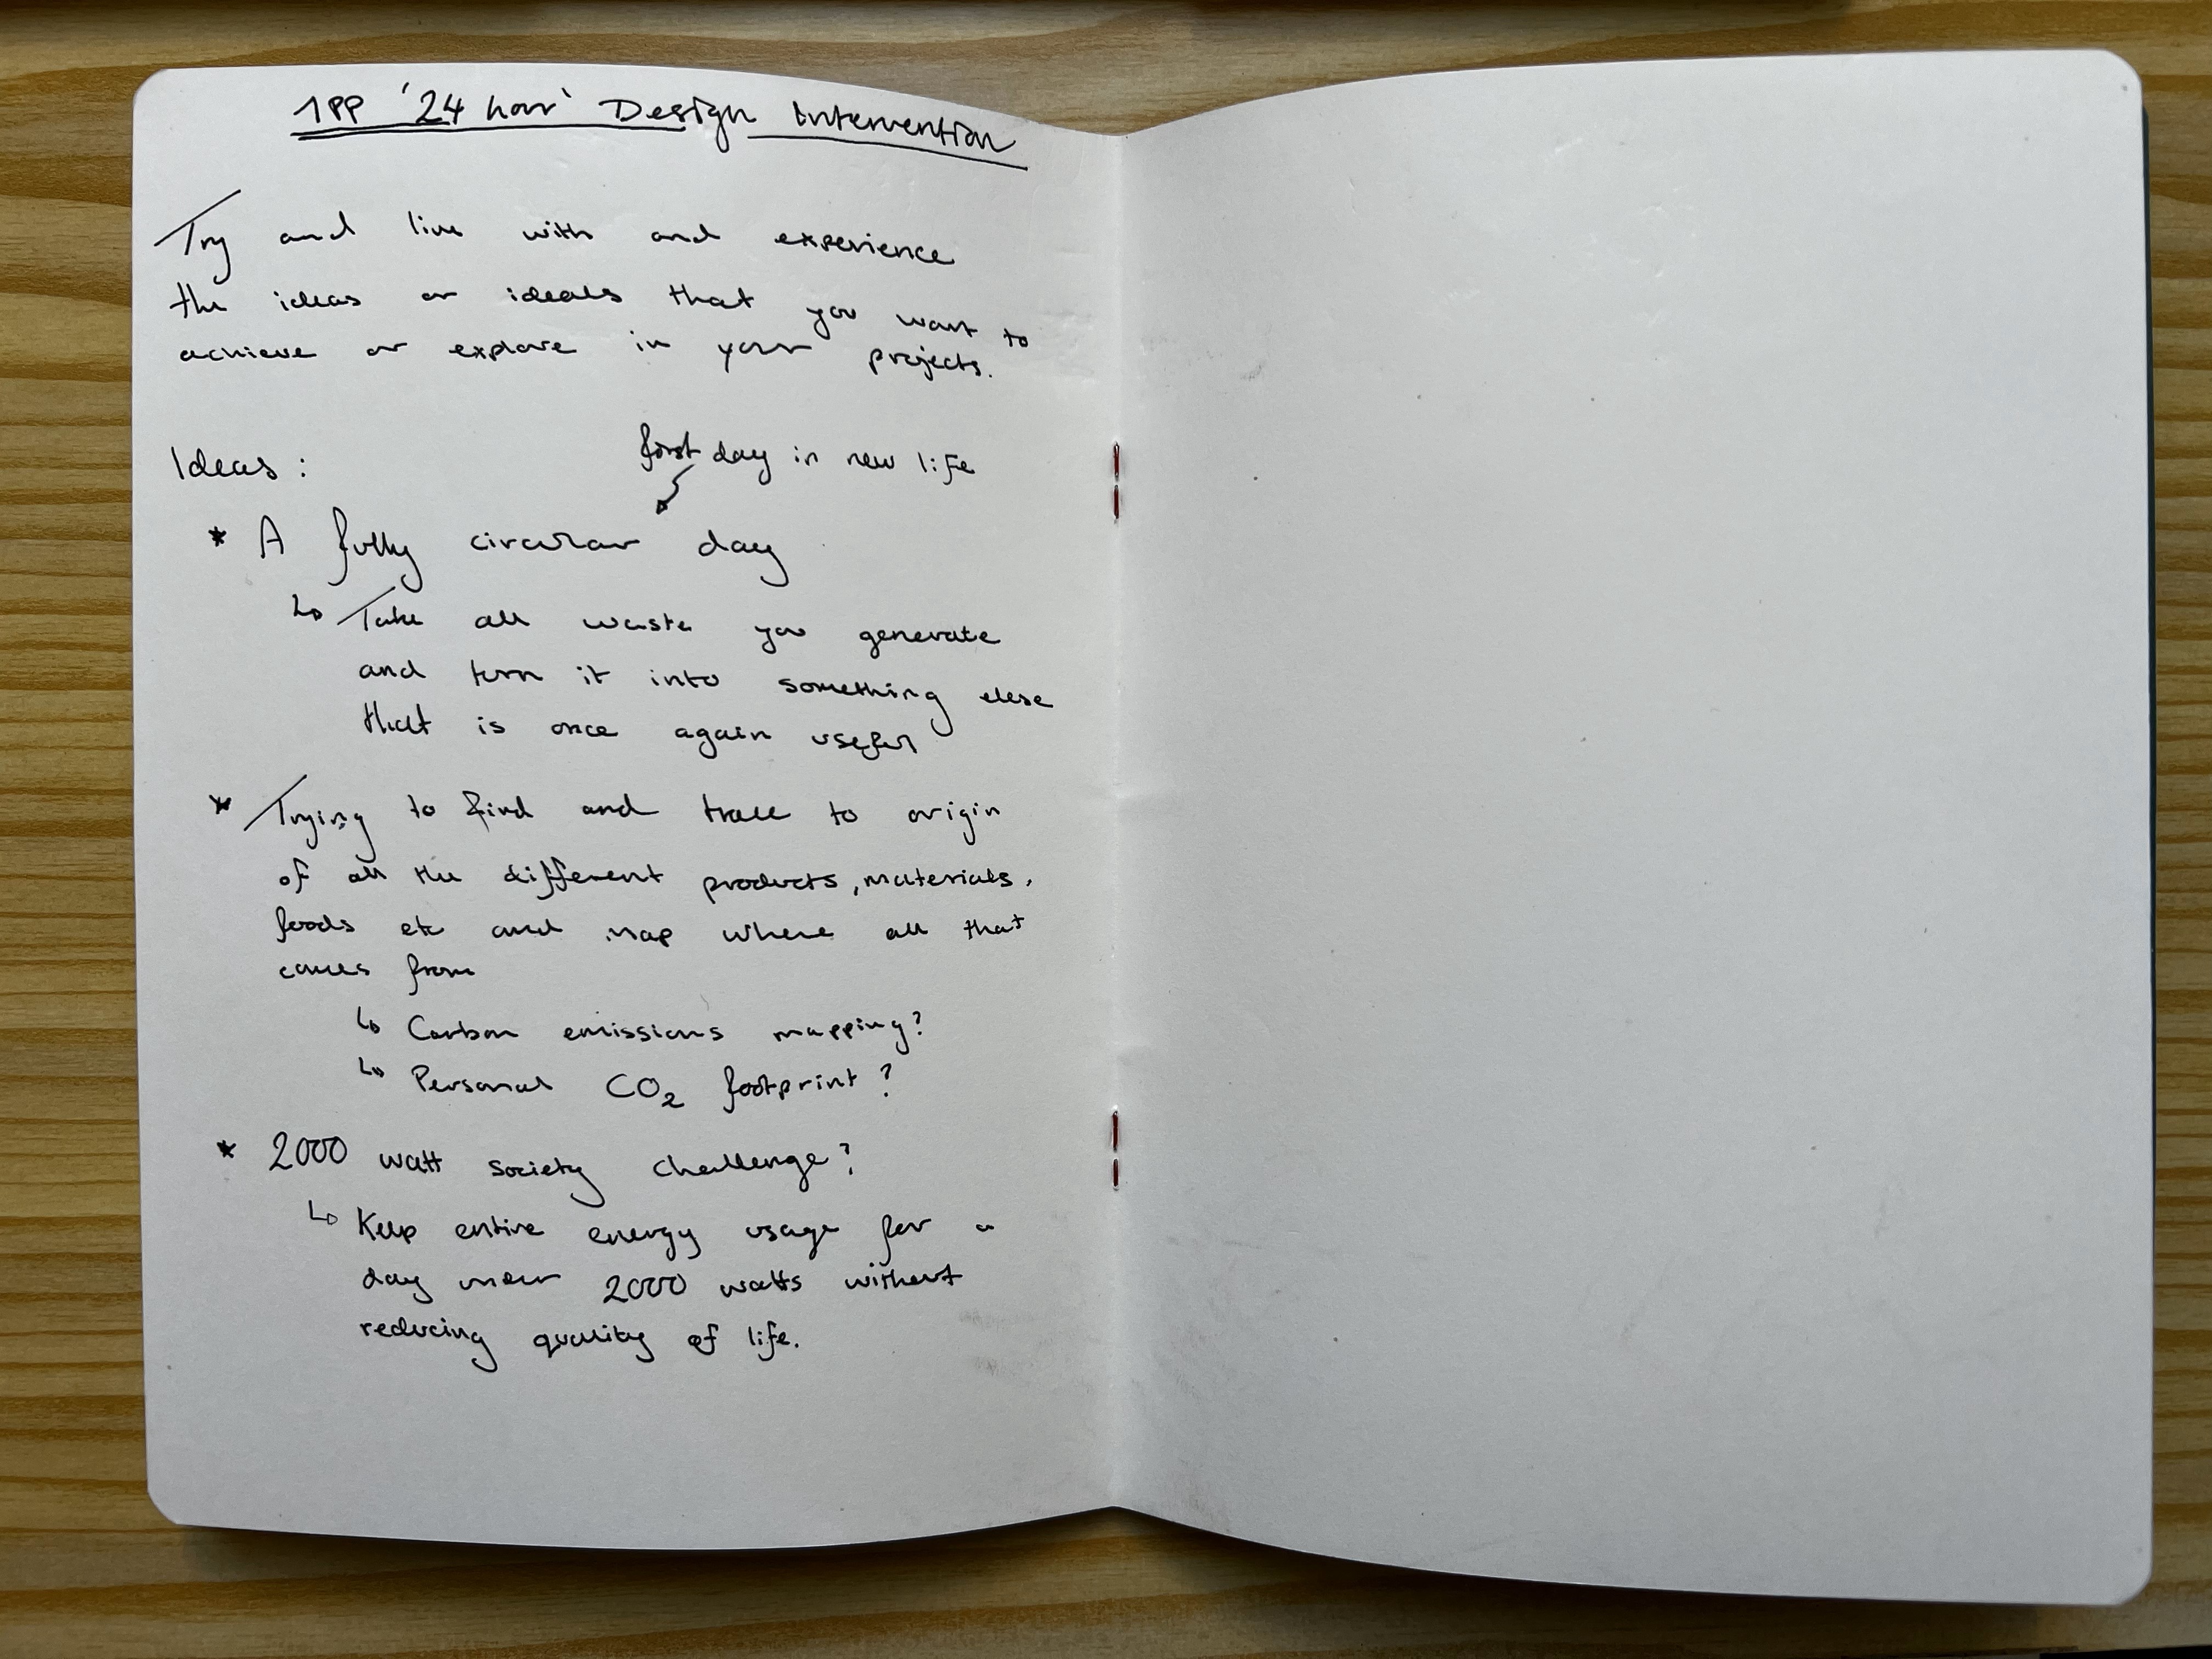 1PP '24 hour' Design Intervention
Try and live with and experience
the ideas or ideals that you want to
achieve or explore in your projects.
Ideas:
first day in new life
* A fully circular day
↳ Take all waste you generate
and turn it into something else
that is once again useful
* Trying to find and trace to origin
of all the different products, materials,
foods etc and map where all that
comes from
↳ Carbon emissions mapping?
↳ Personal CO₂ footprint?
* 2000 watt society challenge?
↳ Keep entire energy usage for a
day under 2000 watts without
reducing quality of life.